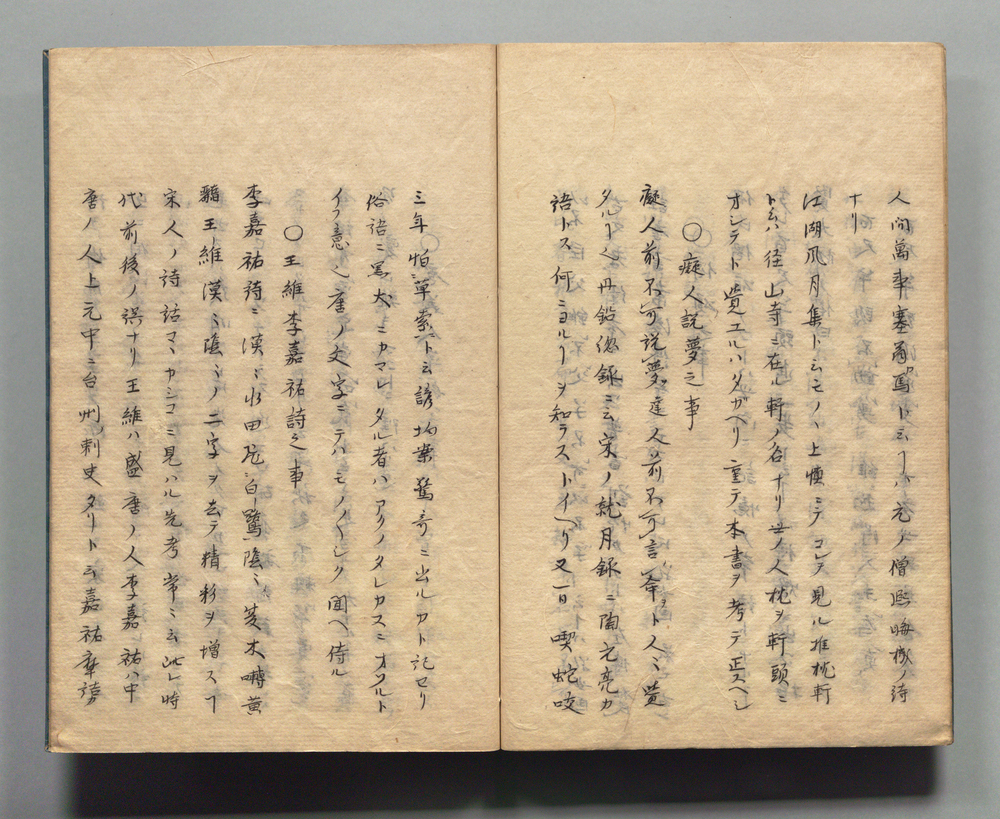 人間萬事塞翁馬ト云ヿハ元ノ僧熙晦機ノ詩
ナリ
江湖風月集ト云モノヽ上懐ミテコレヲ見ル推枕軒
ト云ハ径山寺ニ在ル軒ノ名ナリ世ノ人枕ヲ軒頭ニ
オシテト遺エルハタガヘリ重テ本書ヲ考テ正スヘシ
○癡人説夢之事
癡人前不可説夢達人前不可言命ト人ミ
タルヿ也丹鉛總録ニ云宋ノ就月録ニ陶元亮カ
語トス何ニヨルヿヲ知ラストイヘリ又一曰喫蛇咬
三年怕草索ト云諺均業驚奇ニ出ルカト記セリ
俗語ニ冩犬ニカマレタル者ハアクノタレカスニオクルト
イフ意也唐ノ文字ニテハモノ〱シク聞ヘ侍ル
○王維李嘉祐詩之事
李嘉祐詩ニ漠ミ水田飛白鷺陰ミ夏木囀黄
鸝王維漠ミ陰ミノ二字ヲ去テ精彩ヲ増スヿ
宋人ノ詩話マヽカシコニ見ハル先考常ミ云此レ時
代前後ノ誤ナリ王維ハ盛唐ノ人李嘉祐ハ中
唐ノ人上元中ニ台州刺史タリト云嘉祐摩詰